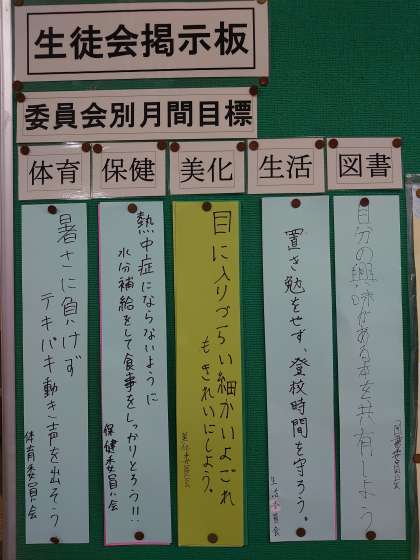 生徒会掲示板
委員会別月間目標
体育
保健
美化
生活
図書
暑さに負けず
テキパキ動き声を出そう
体育委員会
熱中症にならないように
水分補給をして食事をしっかりとろう!!
保健委員会
目に入りづらい細かいよごれ
もきれいにしよう。
美化委員会
置き勉をせず、登校時間を守ろう。
生活委員会
自分の興味がある本を共有しよう
図書委員会